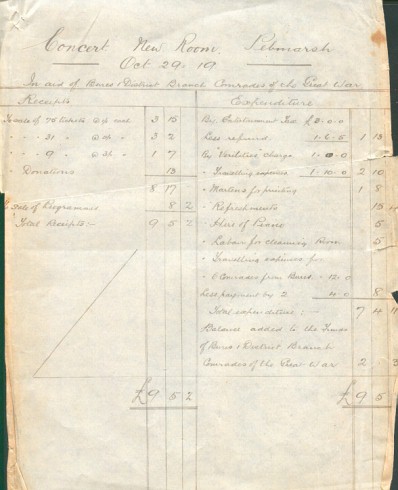 Concert New Room. Pebmarsh
Oct 29. 19
In aid of Bures & District Branch Comrades of the Great War
Receipts
By sale of 75 tickets @ 1/- each 3 15
" " " 31 " @ 2/- " 3 2
" " " 9 " @ 3/- " 1 7
" Donations 13
8 17
" Sale of Programmes 8 2
Total Receipts:- 9 5 2
£9 5 2
Expenditure
By Entertainment Tax £3.0.0
Less refunded 1.6.5 1 13
By "Verilities" charge 1.0.0
" Travelling expenses 1.10.0 2 10
" Martens for printing 1 8
" Refreshments 15
" Hire of Piano 5
" Labour for cleaning Room 5
" Travelling expenses for
" 6 Comrades from Bures. 12.0
Less payment by 2 4.0 8
Total expenditure:- 7 4 11
Balance added to the Funds
of Bures & District Branch
Comrades of the Great War 2 3
£9 5